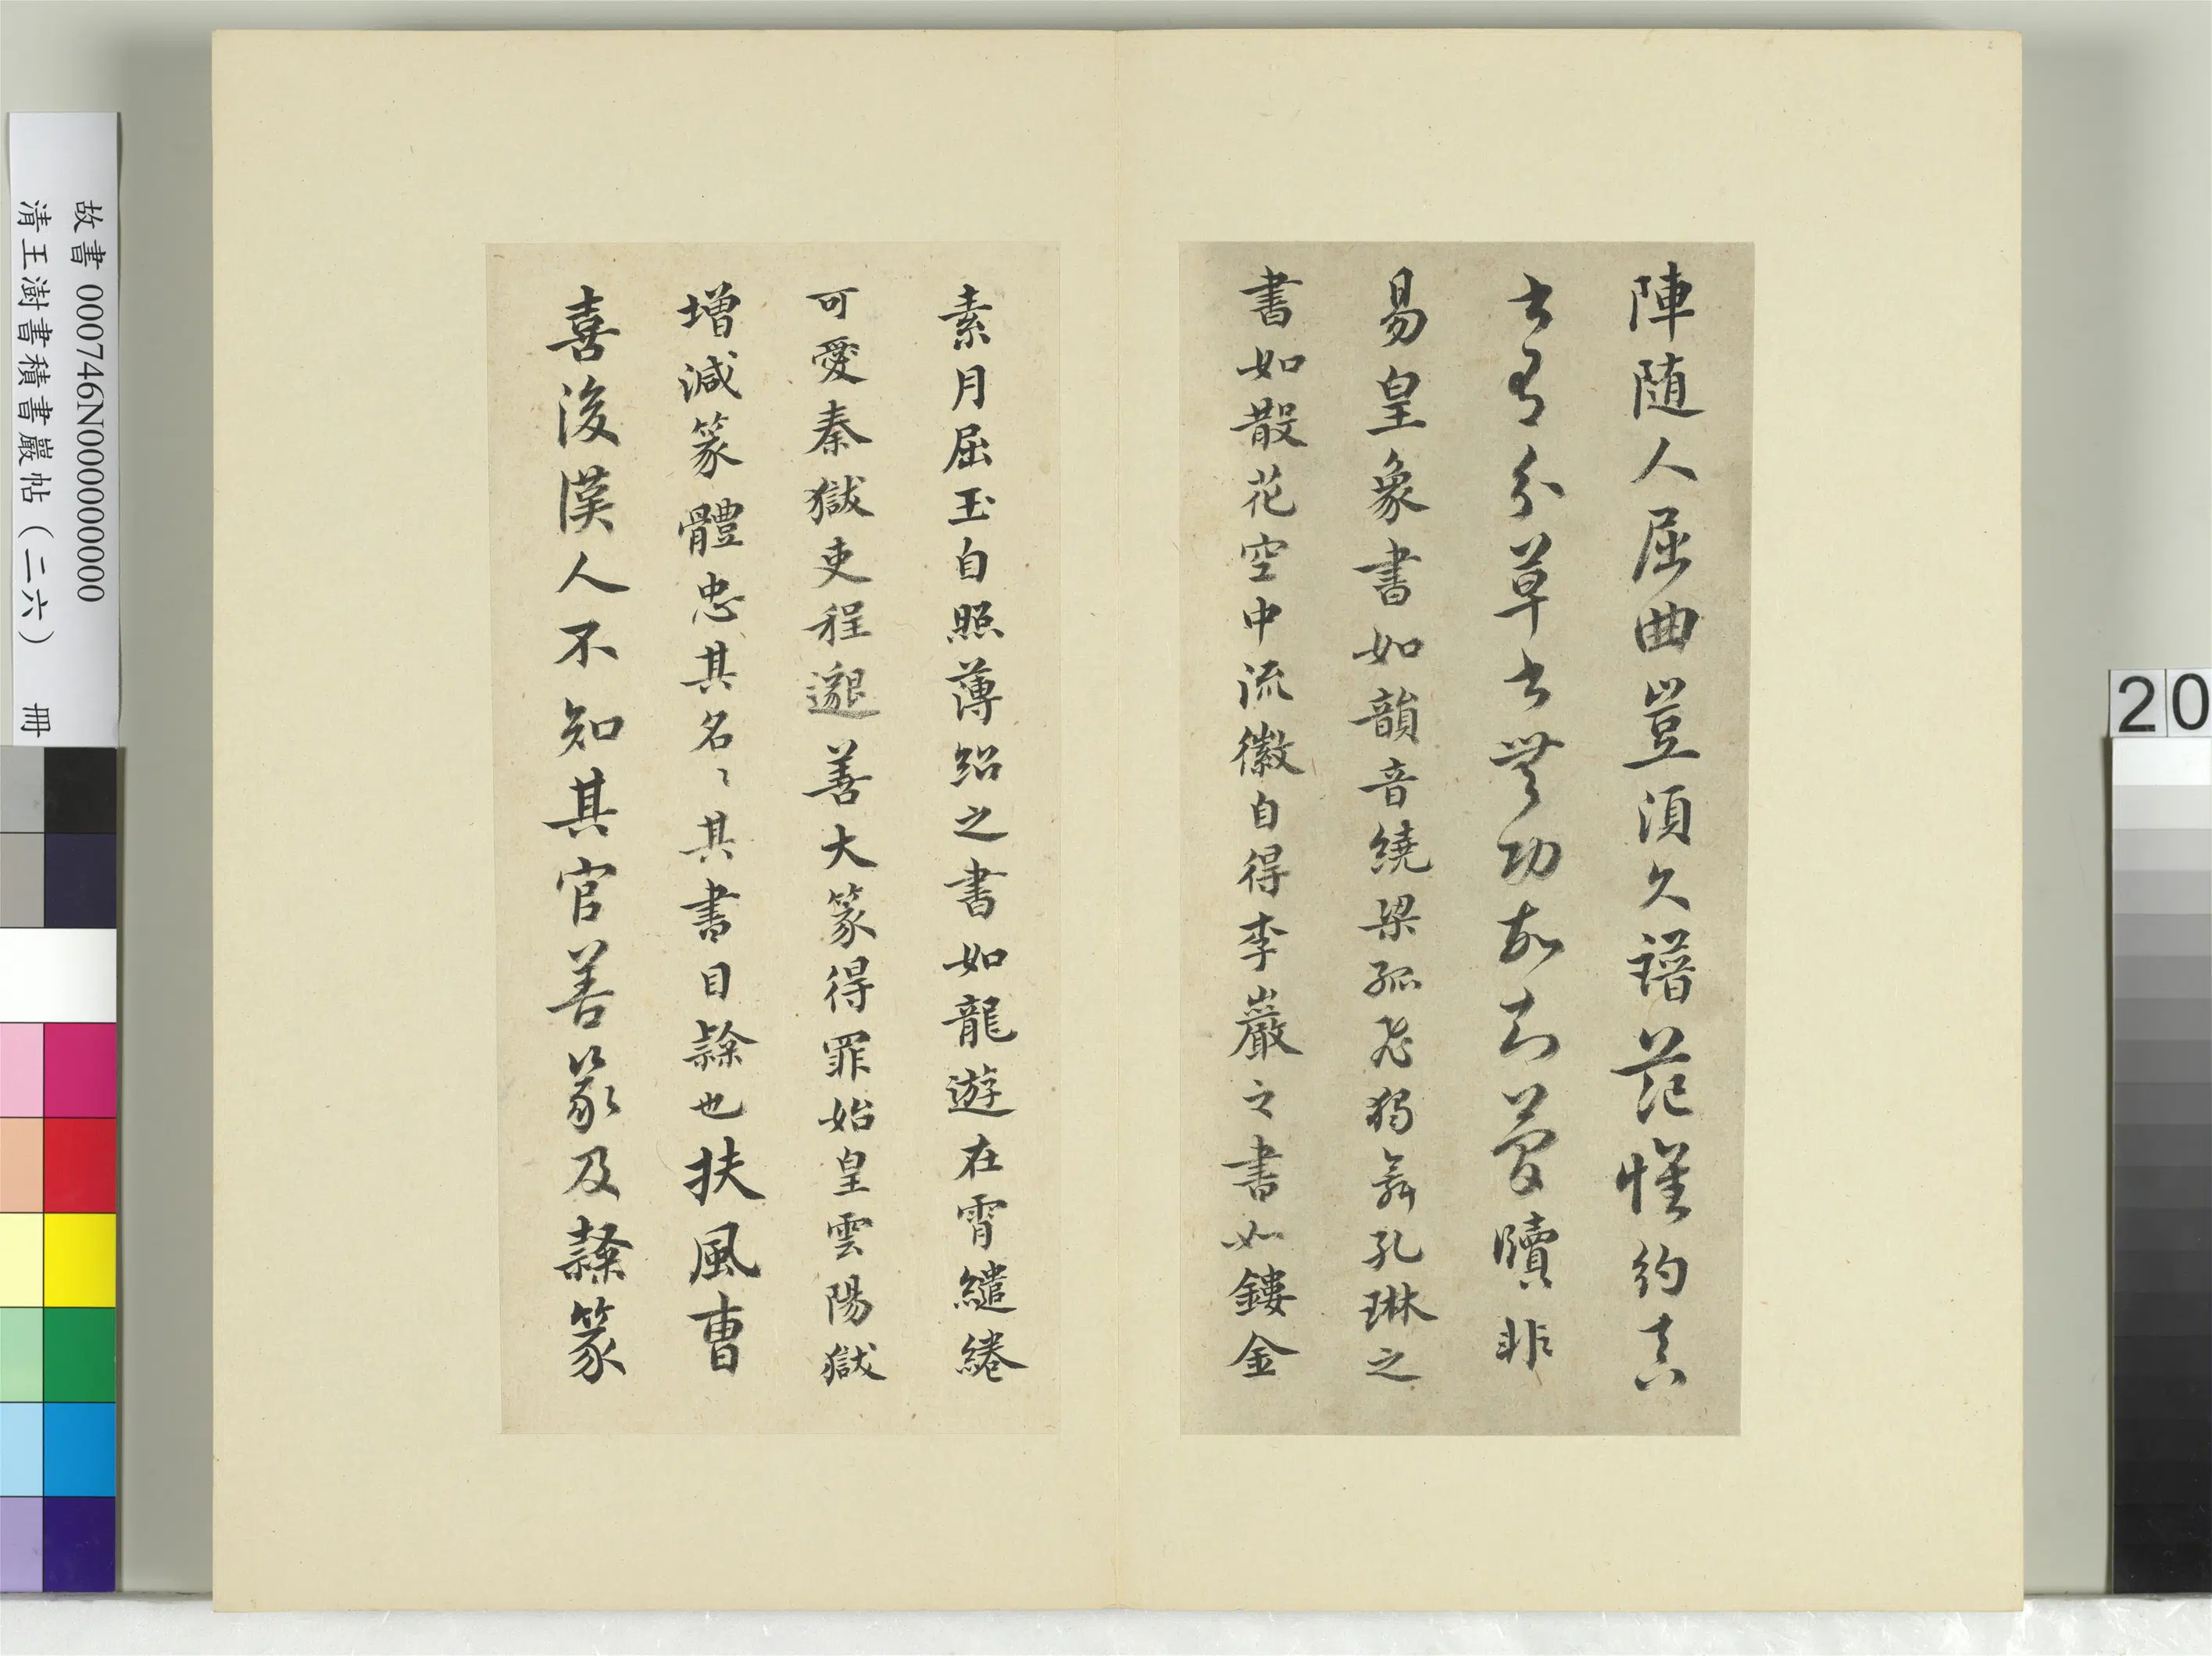 陣随人屈曲豈須久譜范惟約真
書有分草書無功故知簡牘非
易皇象書如韻音繞梁孤飛獨舞孔琳之
書如散花空中流徽自得李巖之書如鏤金
素月屈玉自照薄紹之書如龍遊在霄繾綣
可愛秦獄吏程邈善大篆得罪始皇雲陽獄
增減篆體忠其名〻其書曰隸也扶風曹
喜後漢人不知其官善篆及隸篆
故書 000746N000000000
清王澍書積書巖帖（二六） 冊
20